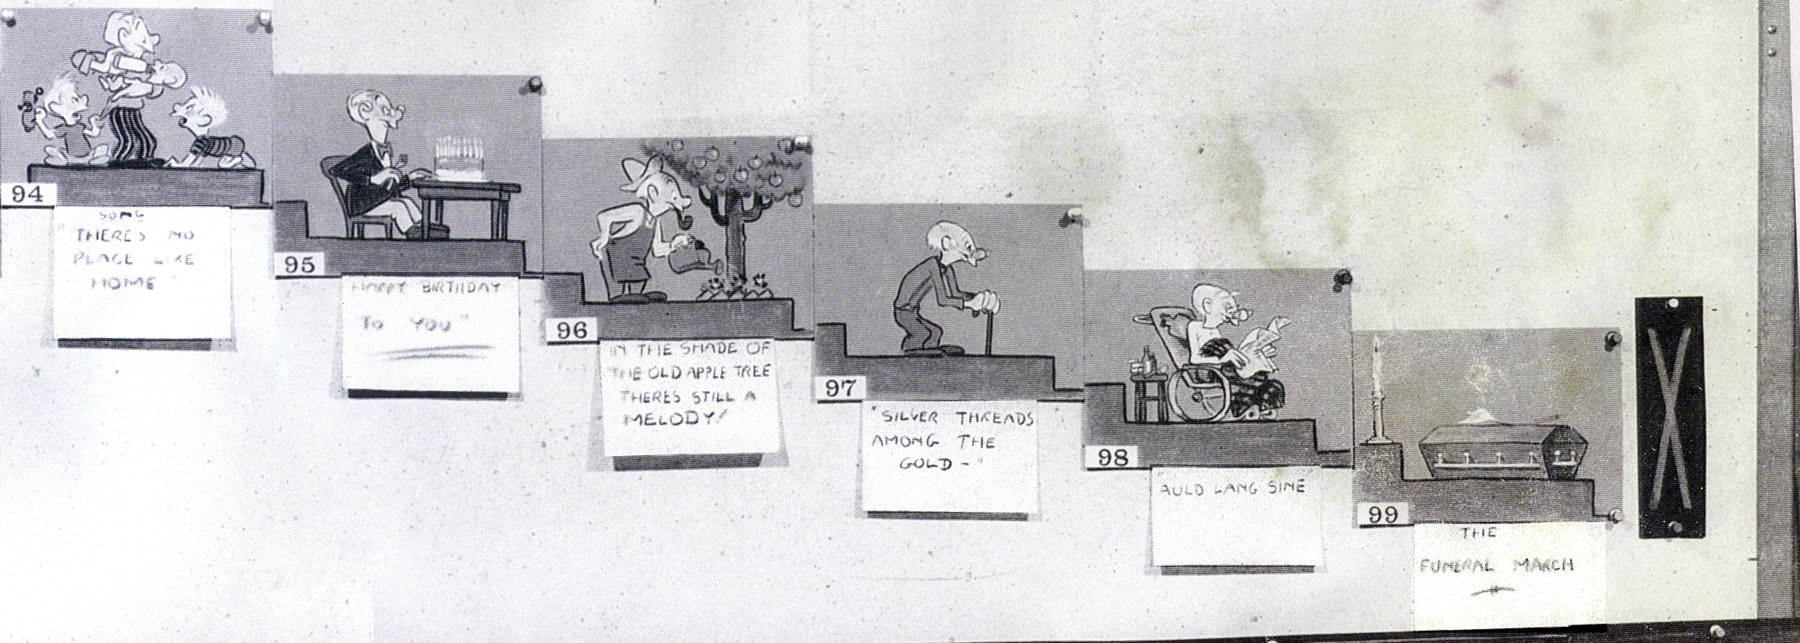 94
SONG
"THERES NO
PLACE LIKE
HOME"
95
HAPPY BIRTHDAY
TO YOU"
96
IN THE SHADE OF
THE OLD APPLE TREE
THERES STILL A
MELODY!
97
"SILVER THREADS
AMONG THE
GOLD-"
98
"AULD LANG SINE
99
THE
FUNERAL MARCH